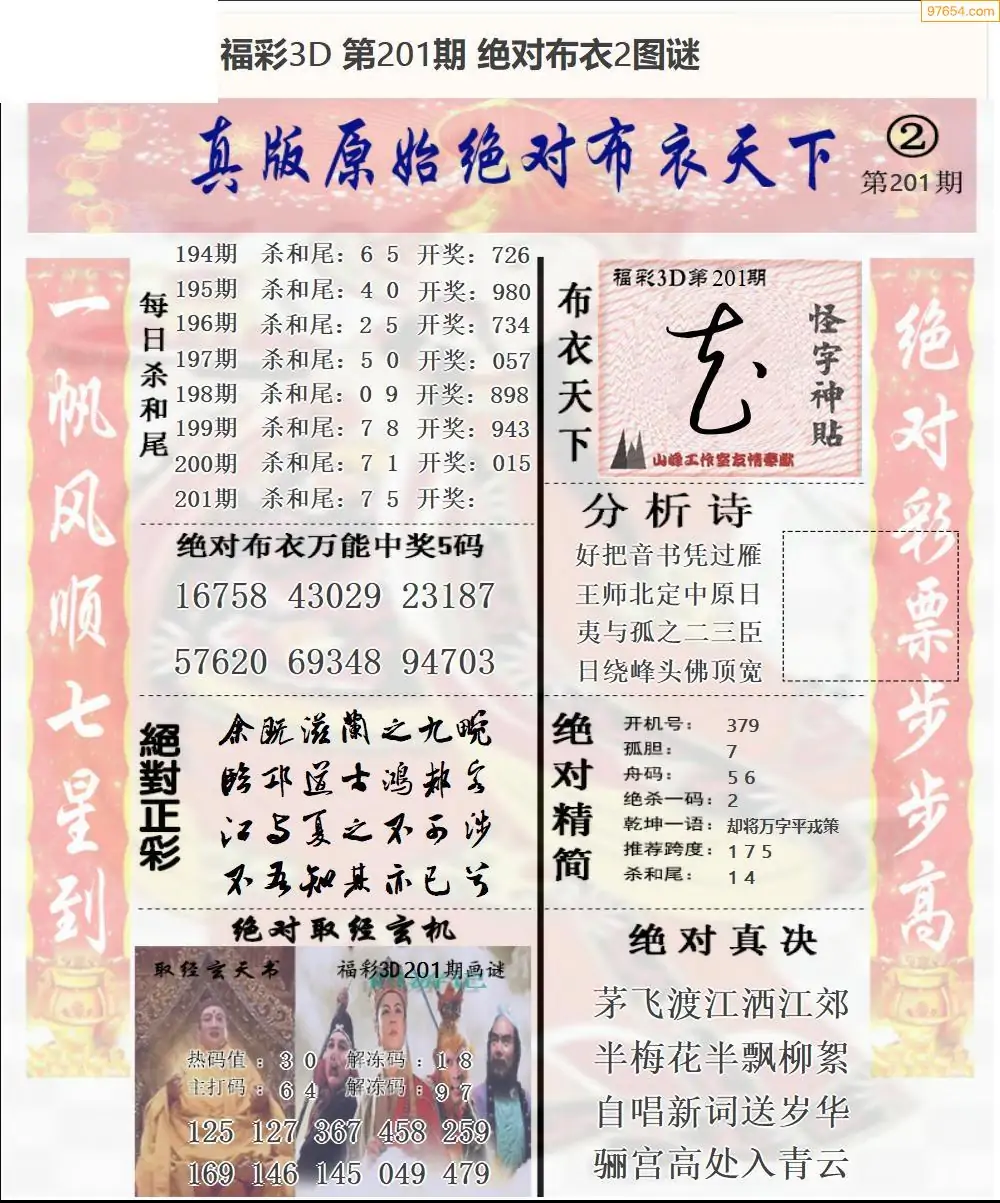 97654.com
福彩3D 第201期 绝对布衣2图谜
真版原始绝对布衣天下
②
第201期
一帆风顺七星到
每日杀和尾
194期 杀和尾：6 5 开奖：726
195期 杀和尾：4 0 开奖：980
196期 杀和尾：2 5 开奖：734
197期 杀和尾：5 0 开奖：057
198期 杀和尾：0 9 开奖：898
199期 杀和尾：7 8 开奖：943
200期 杀和尾：7 1 开奖：015
201期 杀和尾：7 5 开奖：
绝对布衣万能中奖5码
16758 43029 23187
57620 69348 94703
絕對正彩
余既滋蘭之九畹
臨邛道士鸿都客
江与夏之不可涉
不吾知其亦已兮
绝对取经玄机
取经玄天书
福彩3D201期画谜
热码值：3 0 解冻码：1 8
主打码：6 4 解冻码：9 7
125 127 367 458 259
169 146 145 049 479
布衣天下
福彩3D第201期
怪字神貼
山峰工作室友情奉献
分析诗
好把音书凭过雁
王师北定中原日
夷与孤之二三臣
日绕峰头佛顶宽
绝对精简
开机号： 379
孤胆： 7
舟码： 5 6
绝杀一码：2
乾坤一语：却将万字平戎策
推荐跨度：1 7 5
杀和尾： 1 4
绝对真决
茅飞渡江洒江郊
半梅花半飘柳絮
自唱新词送岁华
骊宫高处入青云
绝对彩票步步高